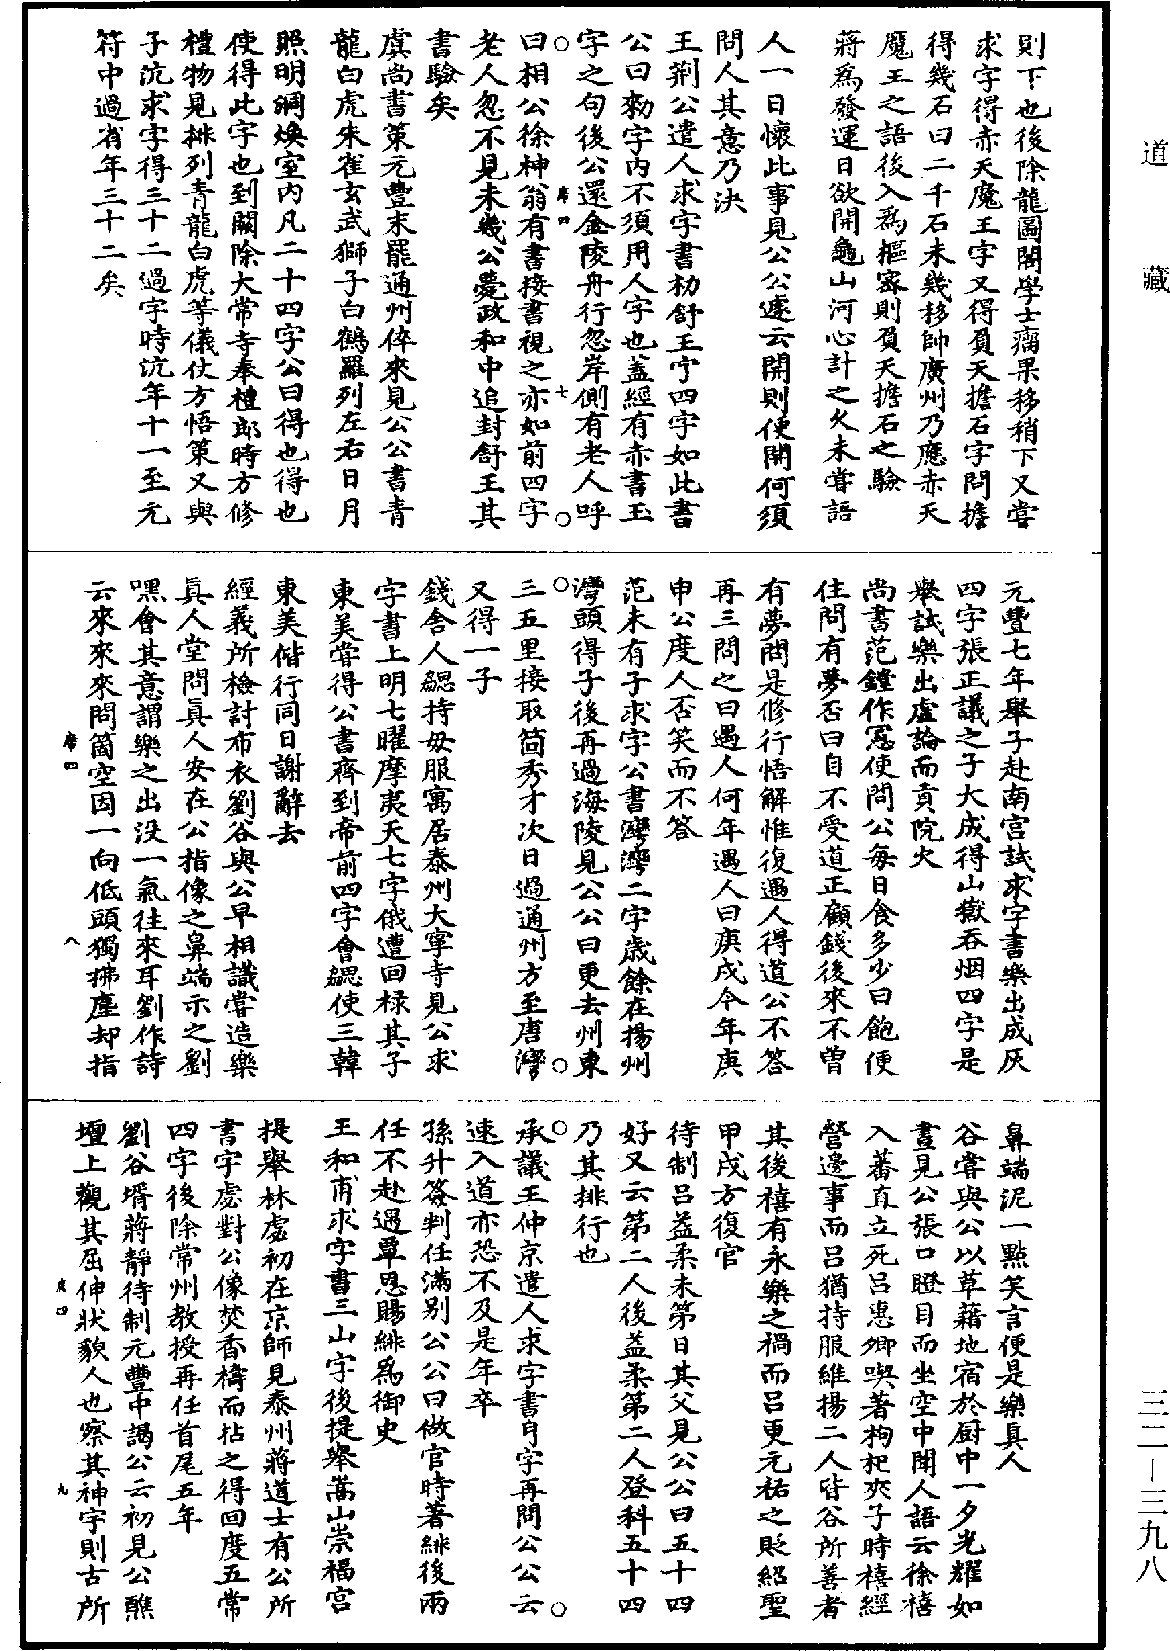 道藏
則下也後除龍圖閣學士痛果移稍下又嘗
求字得赤天魔王字又得負天擔石字問擔
得幾石曰二千石未幾移帥廣州乃應赤天
魔王之語後入為樞密則負天擔石之驗
蔣為發運日欲開龜山河心計之久未嘗語
人一日懷此事見公公遽云開則便開何須
問人其意乃決
王荊公遣人求字書朸舒王宁四字如此書
公曰勑字內不須用人字也蓋經有赤書玉
字之句後公還金陵舟行忽岸側有老人呼
曰相公徐神翁有書接書視之亦如前四字
老人忽不見未幾公薨政和中追封舒王其
書驗矣
虞尚書策元豐末罷通州倅來見公公書青
龍白虎朱雀玄武獅子白鶴羅列左右日月
照明洞煥室內凡二十四字公曰得也得也
使得此字也到闕除大常寺奉禮郎時方修
禮物見排列青龍白虎等儀仗方悟策又與
子沆求字得三十二過字時沆年十一至元
符中過省年三十二矣
席四
七
元豐七年舉子赴南宮試求字書樂出成灰
四字張正議之子大成得山嶽吞烟四字是
舉試樂出虛論而貢院火
尚書范鏜作憲使問公每日食多少曰飽便
住問有夢否曰自不受道正顧錢後來不曾
有夢問是修行悟解惟復遇人得道公不答
再三問之曰遇人何年遇人曰庚戌今年庚
申公度人否笑而不答
范未有子求字公書灣灣二字歲餘在揚州
灣頭得子後再過海陵見公公曰更去州東
三五里接取箇秀才次日過通州方至唐灣
又得一子
錢舍人勰持母服寓居泰州大寧寺見公求
字書上明七曜摩夷天七字俄遭回祿其子
東美嘗得公書齊到帝前四字會勰使三韓
東美偕行同日謝辭去
經義所檢討布衣劉谷與公早相識嘗造樂
真人堂問真人安在公指像之鼻端示之劉
嘿會其意謂樂之出沒一氣往來耳劉作詩
云來來來問箇空因一向低頭獨拂塵却指
席四
八
鼻端泥一點笑言便是樂真人
谷嘗與公以草藉地宿於厨中一夕光耀如
晝見公張口瞪目而坐空中聞人語云徐禧
入蕃直立死呂惠卿喫著枸杞夾子時禧經
營邊事而呂猶持服維揚二人皆谷所善者
其後禧有永樂之禍而呂更元祐之貶紹聖
甲戌方復官
待制呂益柔未第日其父見公公曰五十四
好又云第二人後益柔第二人登科五十四
乃其排行也
承議王仲京遣人求字書月字再問公公云
速入道亦恐不及是年卒
孫升簽判任滿別公公曰做官時著緋後兩
任不赴遇覃恩賜緋為御史
王和甫求字書三山字後提舉嵩山崇福宮
提舉林虙初在京師見泰州蔣道士有公所
書字虙對公像焚香禱而拈之得回度五常
四字後除常州教授再任首尾五年
劉谷壻蔣靜待制元豐中謁公云初見公醮
壇上觀其屈伸狀貌人也察其神宇則古所
席四
九
三二—三九八